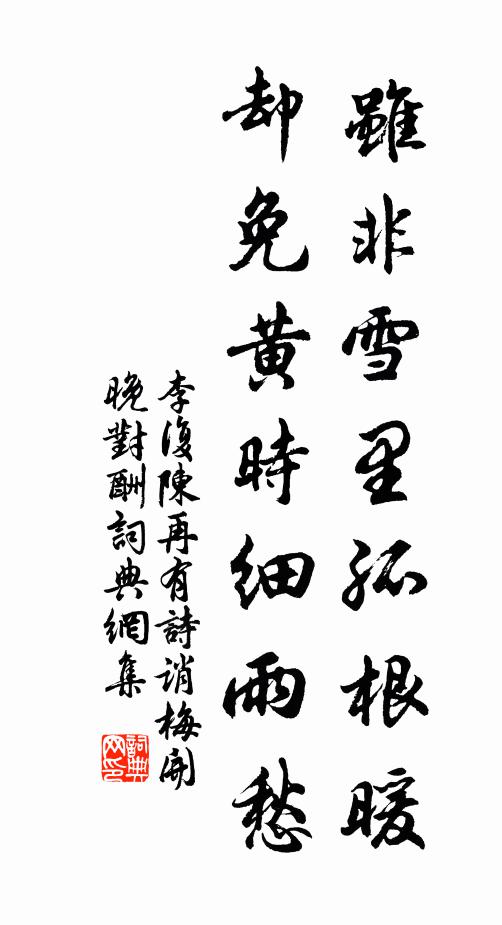 雖非雪里孤根暖
却免黄時細雨愁
李復陳再有詩誚梅開
晚對酬詞典網集
詞典
网印